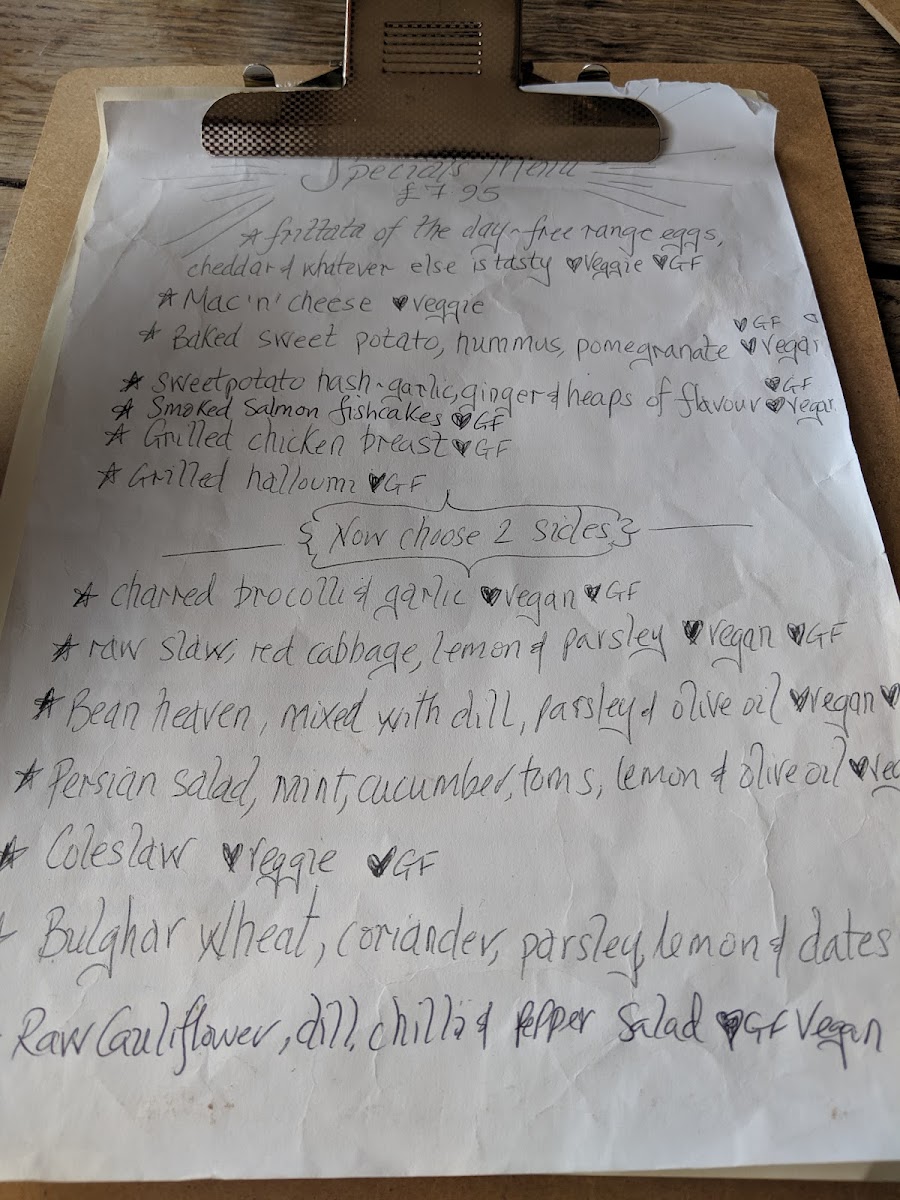 Specials Menu
£7.95
☆ frittata of the day - free range eggs,
cheddar & whatever else is tasty ♥veggie ♥GF
☆ Mac 'n' cheese ♥veggie
♥GF
☆ Baked sweet potato, hummus, pomegranate ♥vegan
♥GF
☆ sweetpotato hash - garlic, ginger & heaps of flavour ♥vegan
☆ Smoked Salmon fishcakes ♥GF
☆ Grilled chicken breast ♥GF
☆ Grilled halloumi ♥GF
{ Now choose 2 sides }
☆ charred brocolli & garlic ♥vegan ♥GF
☆ raw slaw, red cabbage, lemon & parsley ♥vegan ♥GF
☆ Bean heaven, mixed with dill, parsley & olive oil ♥vegan ♥
☆ Persian salad, mint, cucumber, toms, lemon & olive oil ♥veg
☆ Coleslaw ♥veggie ♥GF
☆ Bulghar wheat, coriander, parsley, lemon & dates
Raw Cauliflower, dill, chilli & pepper Salad ♥GF Vegan